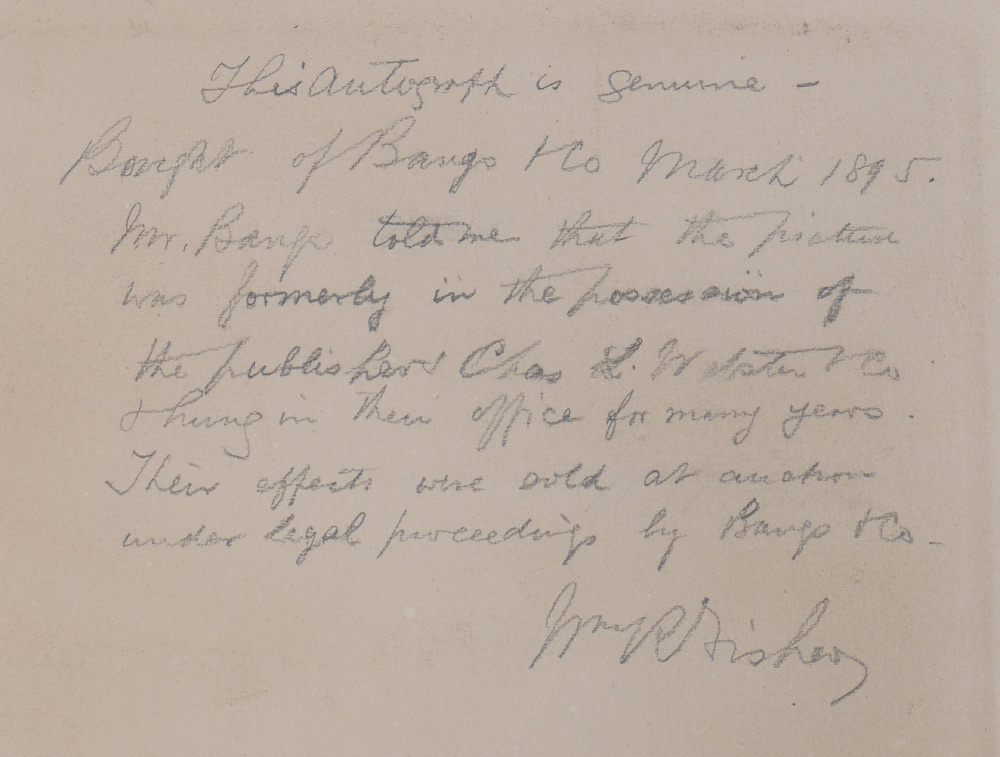 This Autograph is genuine –
Bought of Bangs & Co March 1895.
Mr. Bangs told me that the picture
was formerly in the possession of
the publishers Chas L. Webster & Co
& hung in their office for many years.
Their effects were sold at auction
under legal proceedings by Bangs & Co –
Wm R Fisher